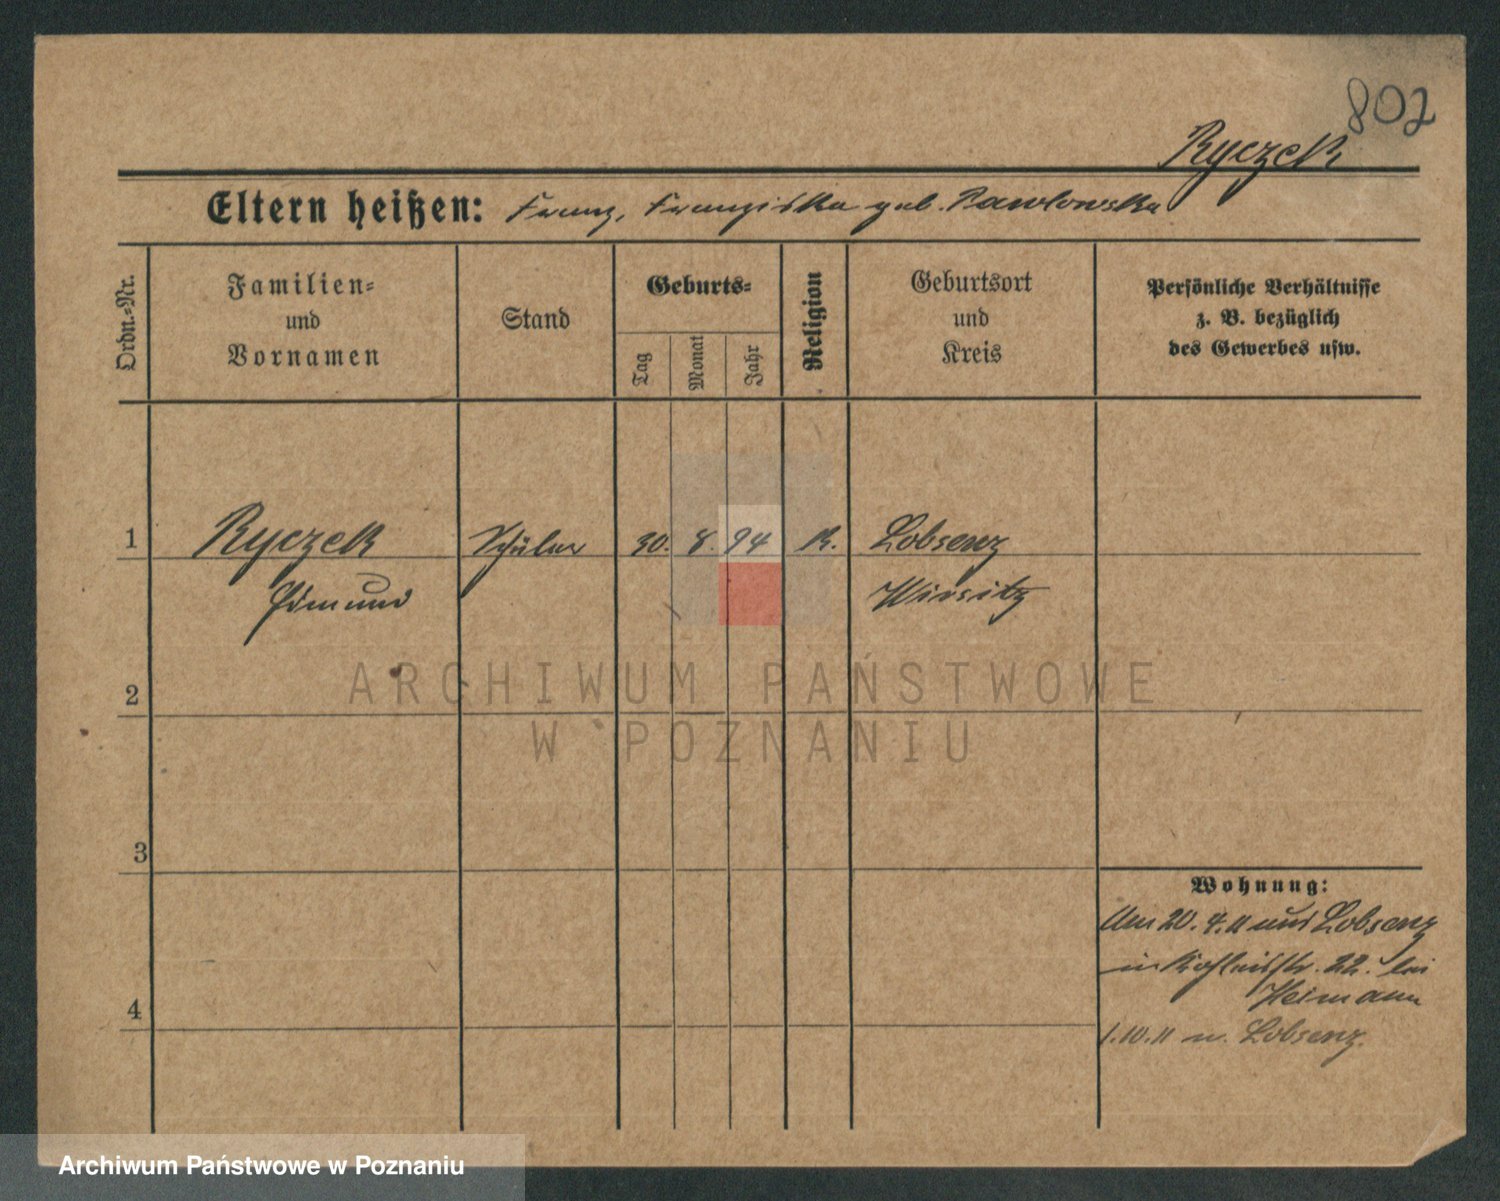 802
Ryczek
Eltern heißen: Franz, Franziska geb. Pawlowska
Ordn.-Nr.
Familien-
und
Vornamen
Stand
Geburts-
Tag
Monat
Jahr
Religion
Geburtsort
und
Kreis
Persönliche Verhältnisse
z. B. bezüglich
des Gewerbes usw.
1 Ryczek Schüler 30. 8. 94 K. Lobsenz
Edmund Wirsitz
ARCHIWUM PAŃSTWOWE
W POZNANIU
2
3
4
Wohnung:
Am 20. 4. 11 aus Lobsenz
in 22. bei
Heimann
1.10.11 n. Lobsenz.
Archiwum Państwowe w Poznaniu